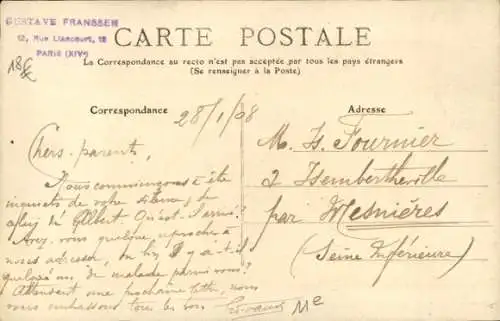 GUSTAVE FRANSSEN
12, Rue Liancourt, 12
PARIS (XIVe)
CARTE POSTALE
La Correspondance au recto n'est pas acceptée par tous les pays étrangers
(Se renseigner à la Poste)
Correspondance
Adresse
28/1/08
Chers parents,
Nous commençons à être
inquiets de votre silence, de
celui de Gilbert. Qu'est-il arrivé?
Avez-vous quelque reproche à
nous adresser, ou bien y a-t-il
quelqu'un de malade parmi vous?
Attendant une prochaine lettre, nous
vous embrassons tous les
M. Fournier
à Isembertheville
par Mesnières
(Seine Inférieure)